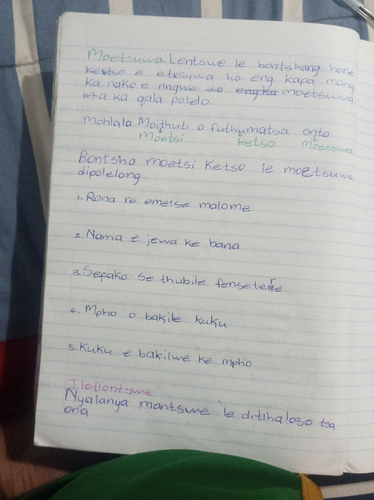 Moetsuwa: Lentswe le bontshang hore
ketso e etsuwa ho eng kapa mang
ka nako e nngwe moetsuwa
ka qala polelo.
Mohlala Moithuti o futhumatsa onto
moetsi ketso moetsuwa
Bontsha moetsi ketso le moetsuwa
dipolelong
1. Rona re emetse malome
2. Nama e jewa ke bana.
3. Sefako se thubile fensetere
4. Mpho o bakile kuku
5. Kuku e bakilwe ke mpho
Tlotlontswe
Nyalanya mantswe le ditlhaloso tsa
ona